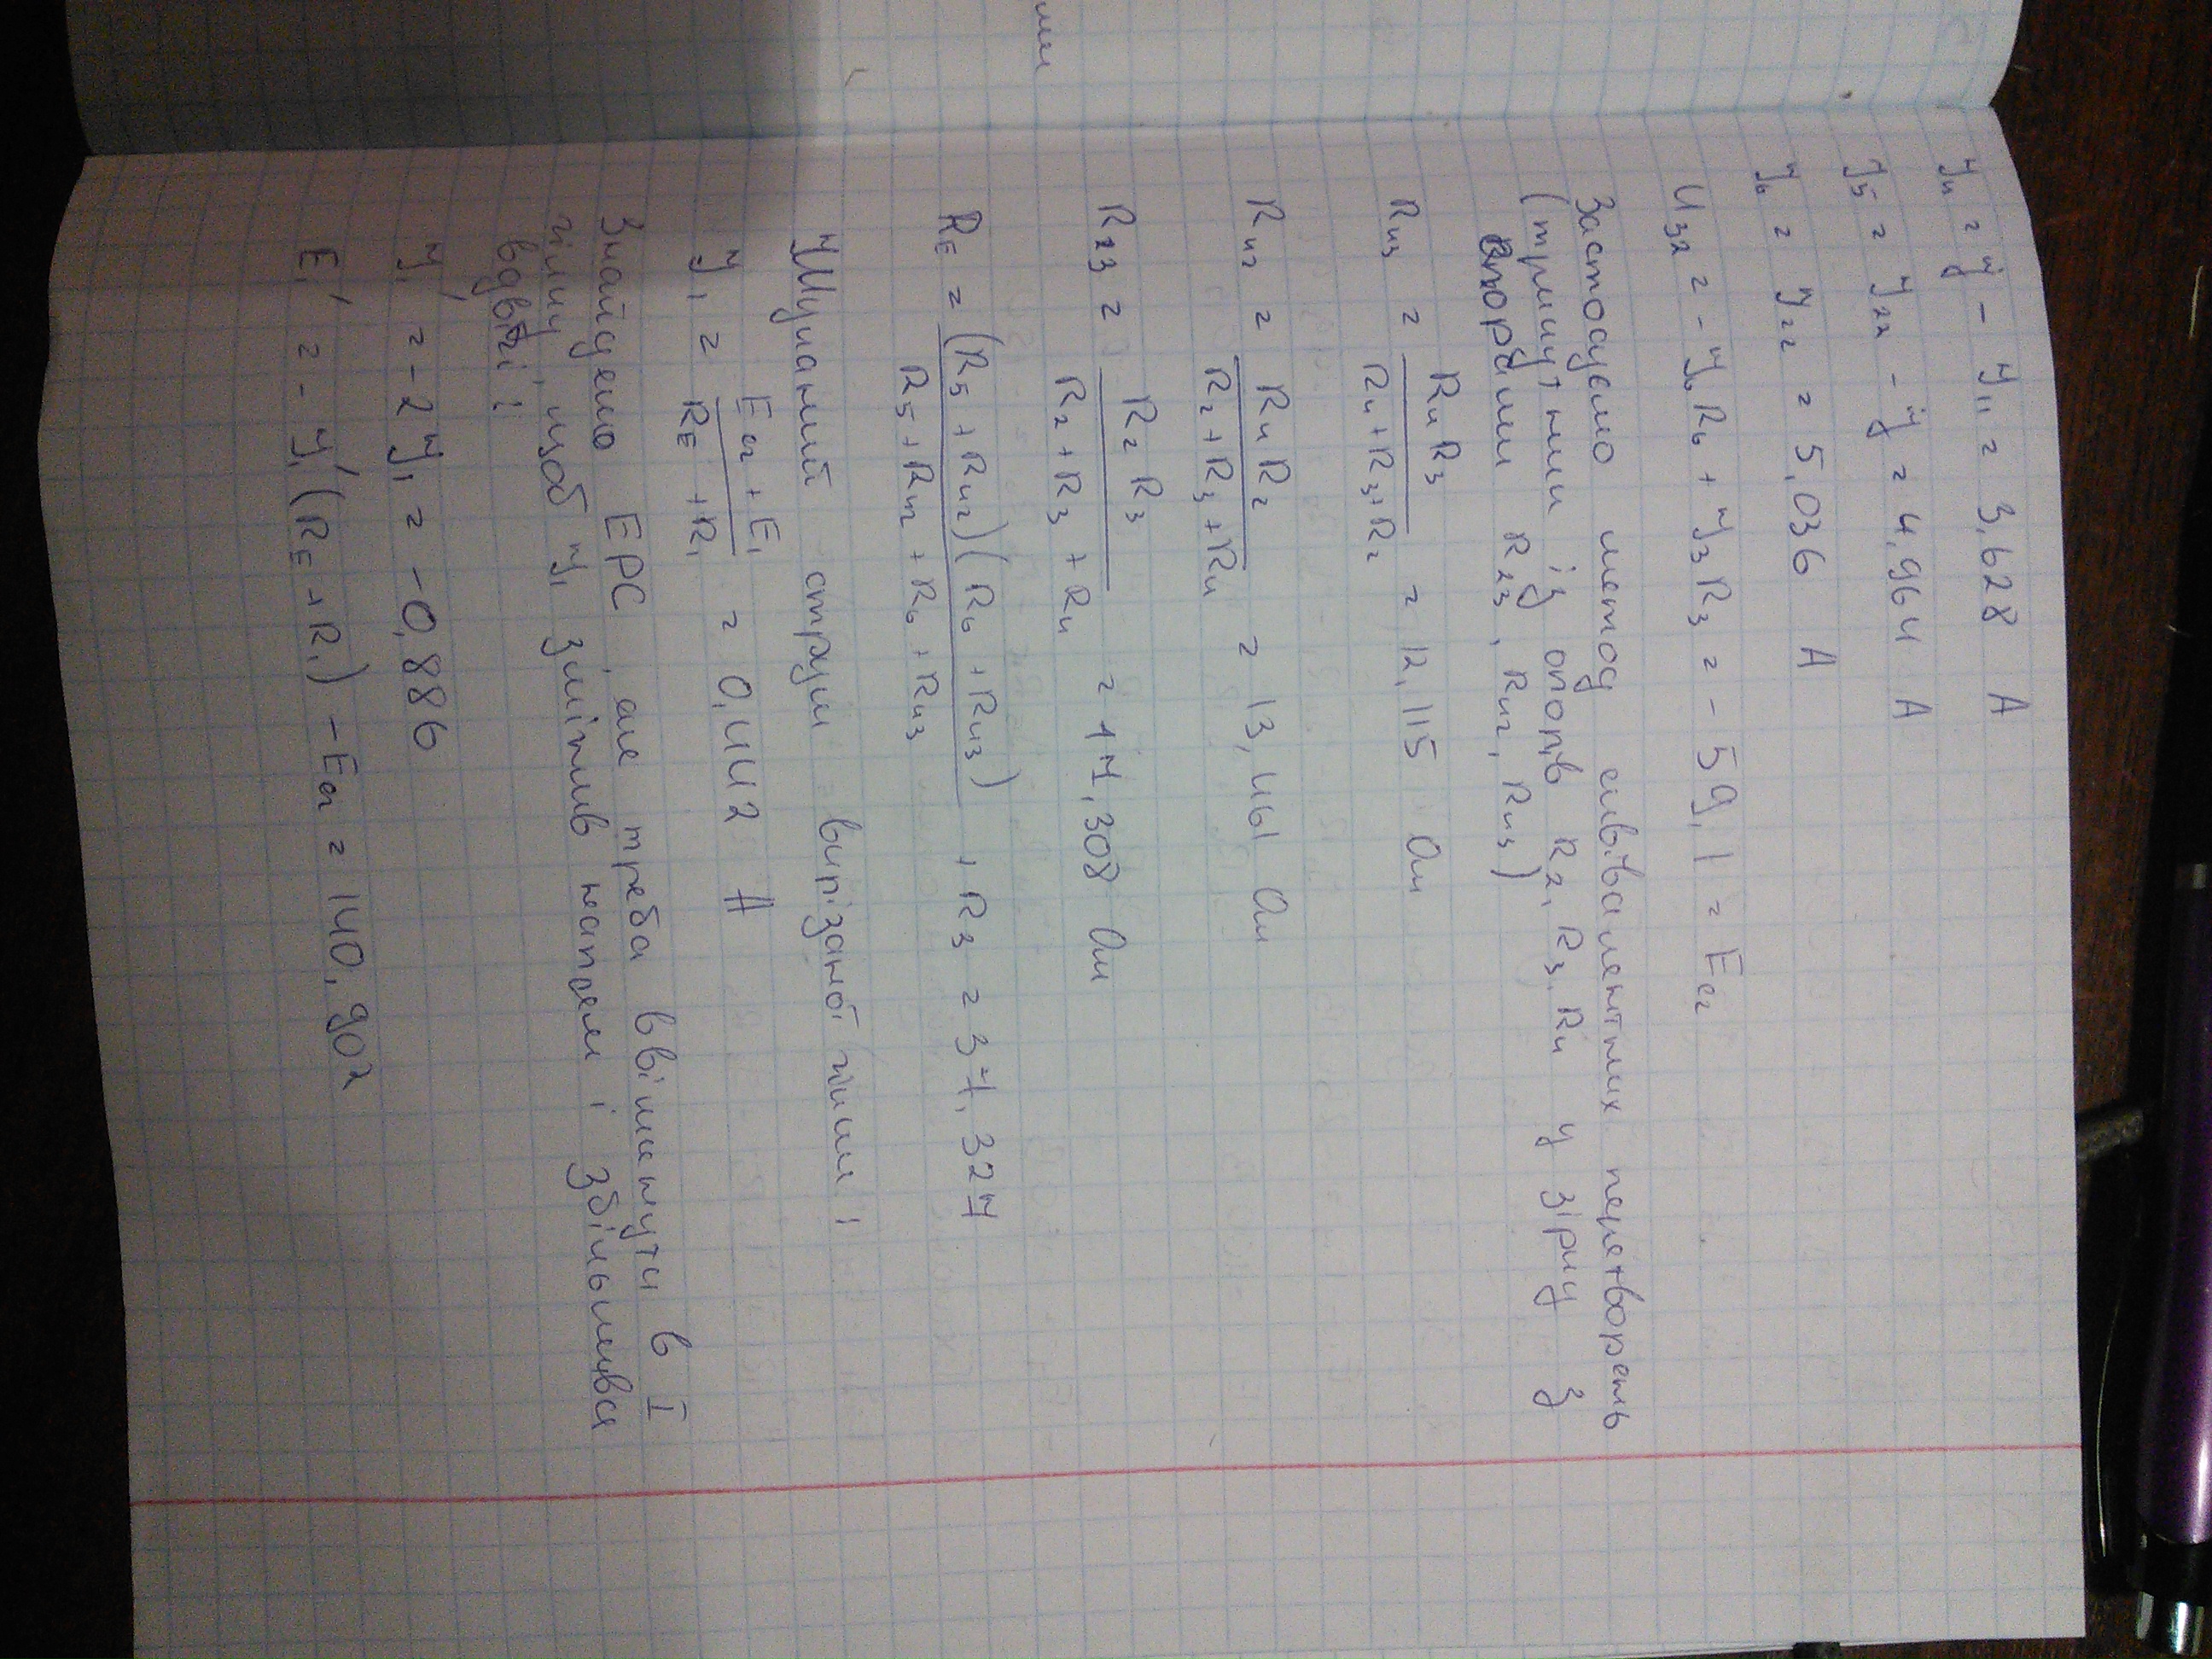 лим
У₄ = У - У₁₁ = 3,628 А
У₅ = У₂₂ - У = 4,964 А
У₆ = У₂₂ = 5,036 А
U₃₂ = - У₆R₆ + У₃R₃ = - 59,1 = Eег
Застосуємо метод еквівалентних перетворень
(трикутник із опорів R₂, R₃, R₄ у зірку з
опорами R₂₃, R₄₂, R₄₃)
R₄₃ = R₄R₃ / R₄+R₃+R₂ = 12,115 Ом
R₄₂ = R₄R₂ / R₂+R₃+R₄ = 13,461 Ом
R₂₃ = R₂R₃ / R₂+R₃+R₄ = 17,308 Ом
RЕ = (R₅+R₄₂)(R₆+R₄₃) / R₅+R₄₂+R₆+R₄₃ + R₂₃ = 37,327
Шуканий струм вирізаної гілки:
У₁ = Eег+E₁ / RЕ+R₁ = 0,442 А
Знайдемо ЕРС, яке треба ввімкнути в I
гілку, щоб У₁ змінив напрям і збільшився
вдвічі:
У₁' = -2У₁ = -0,886
E₁' = - У₁'(RЕ+R₁) - Eег = 140,902